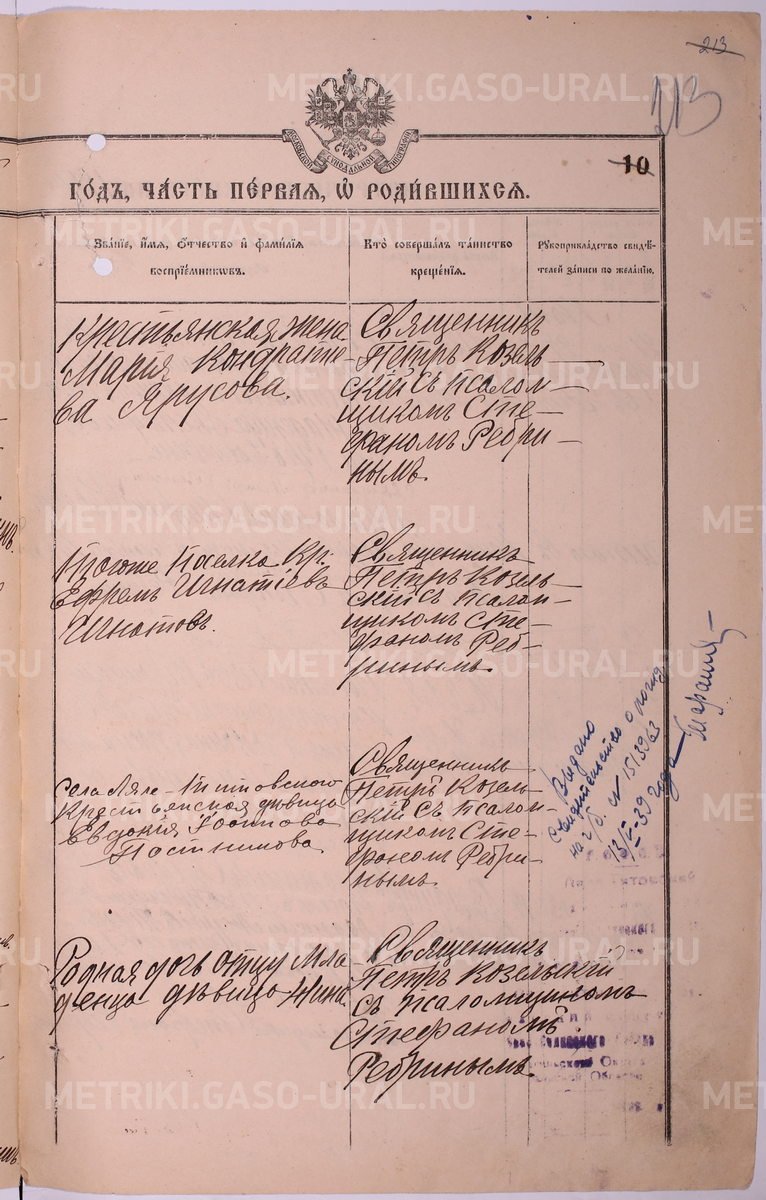 213
213
МОСКОВСКОЙ СѴНОДАЛЬНОЙ ТИПОГРАФІИ
10
ГОДЪ, ЧАСТЬ ПЕРВАЯ, Ѡ РОДИВШИХСЯ.
Званіе, имя, отчество и фамилія
воспріемниковъ.
Кто совершалъ таинство
крещенія.
Рукоприкладство свидѣ-
телей записи по желанію.
Крестьянская жена
Марія Кондратіе-
ва Ярусова.
Священникъ
Петръ Козель-
скій съ псалом-
щикомъ Сте-
фаномъ Ребри-
нымъ.
Тогоже поселка Кр.
Ефремъ Игнатіевъ
Игнатовъ.
Священникъ
Петръ Козель-
скій съ псалом-
щикомъ Сте-
фаномъ Реб-
ринымъ.
Села Ляле-Титовскаго
Крестьянская дѣвица
Евдокія
Постникова
Священникъ
Петръ Козель-
скій съ псалом-
щикомъ Сте-
фаномъ Ребри-
нымъ.
Выдано
свидетельство о рожд.
на г/б. № 15139/63
13/V-39 года
Родная дочь отцу мла-
денца дѣвица
Священникъ
Петръ Козельскій
съ псаломщикомъ
Стефаномъ
Ребринымъ.
METRIKI.GASO-URAL.RU